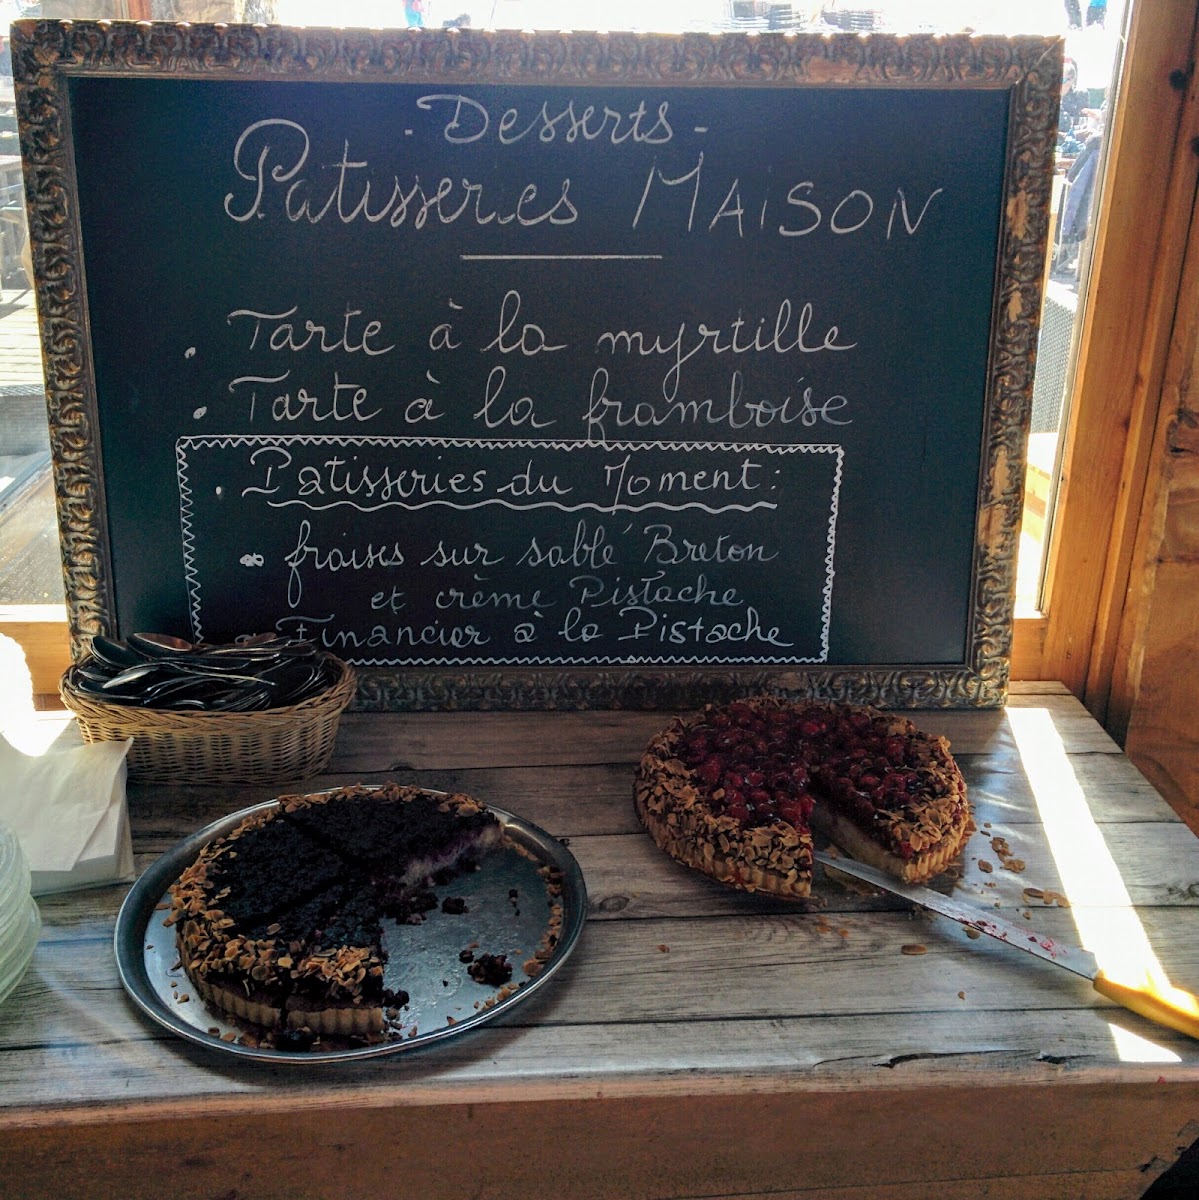 - Desserts -
Patisseries MAiSON
• Tarte à la myrtille
• Tarte à la framboise
• Patisseries du Moment :
fraises sur sablé Breton
et crème Pistache
Financier à la Pistache